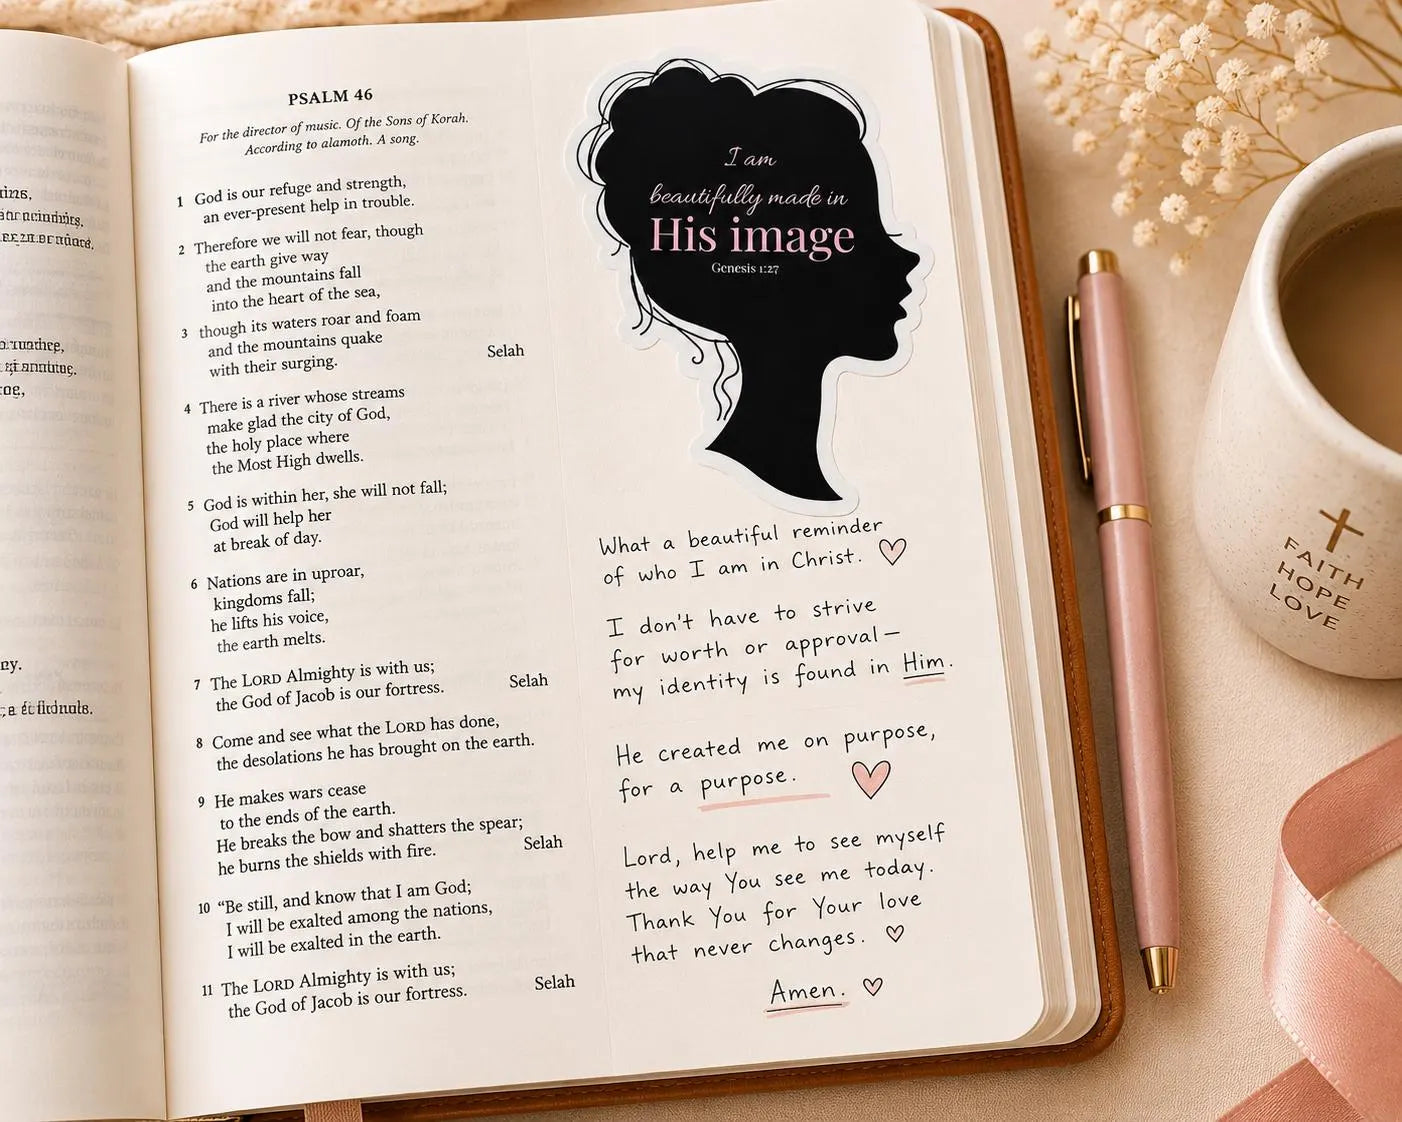 PSALM 46
For the director of music. Of the Sons of Korah.
According to alamoth. A song.
1 God is our refuge and strength,
an ever-present help in trouble.
2 Therefore we will not fear, though
the earth give way
and the mountains fall
into the heart of the sea,
3 though its waters roar and foam
and the mountains quake
with their surging. Selah
4 There is a river whose streams
make glad the city of God,
the holy place where
the Most High dwells.
5 God is within her, she will not fall;
God will help her
at break of day.
6 Nations are in uproar,
kingdoms fall;
he lifts his voice,
the earth melts.
7 The LORD Almighty is with us;
the God of Jacob is our fortress. Selah
8 Come and see what the LORD has done,
the desolations he has brought on the earth.
9 He makes wars cease
to the ends of the earth.
He breaks the bow and shatters the spear;
he burns the shields with fire. Selah
10 “Be still, and know that I am God;
I will be exalted among the nations,
I will be exalted in the earth.
11 The LORD Almighty is with us;
the God of Jacob is our fortress. Selah
I am
beautifully made in
His image
Genesis 1:27
What a beautiful reminder
of who I am in Christ.
I don't have to strive
for worth or approval—
my identity is found in Him.
He created me on purpose,
for a purpose.
Lord, help me to see myself
the way You see me today.
Thank You for Your love
that never changes.
Amen.
FAITH
HOPE
LOVE